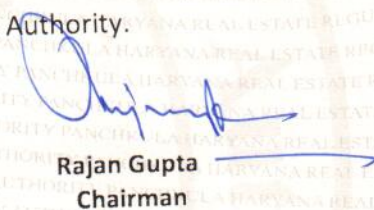 Authority.
Rajan Gupta
Chairman